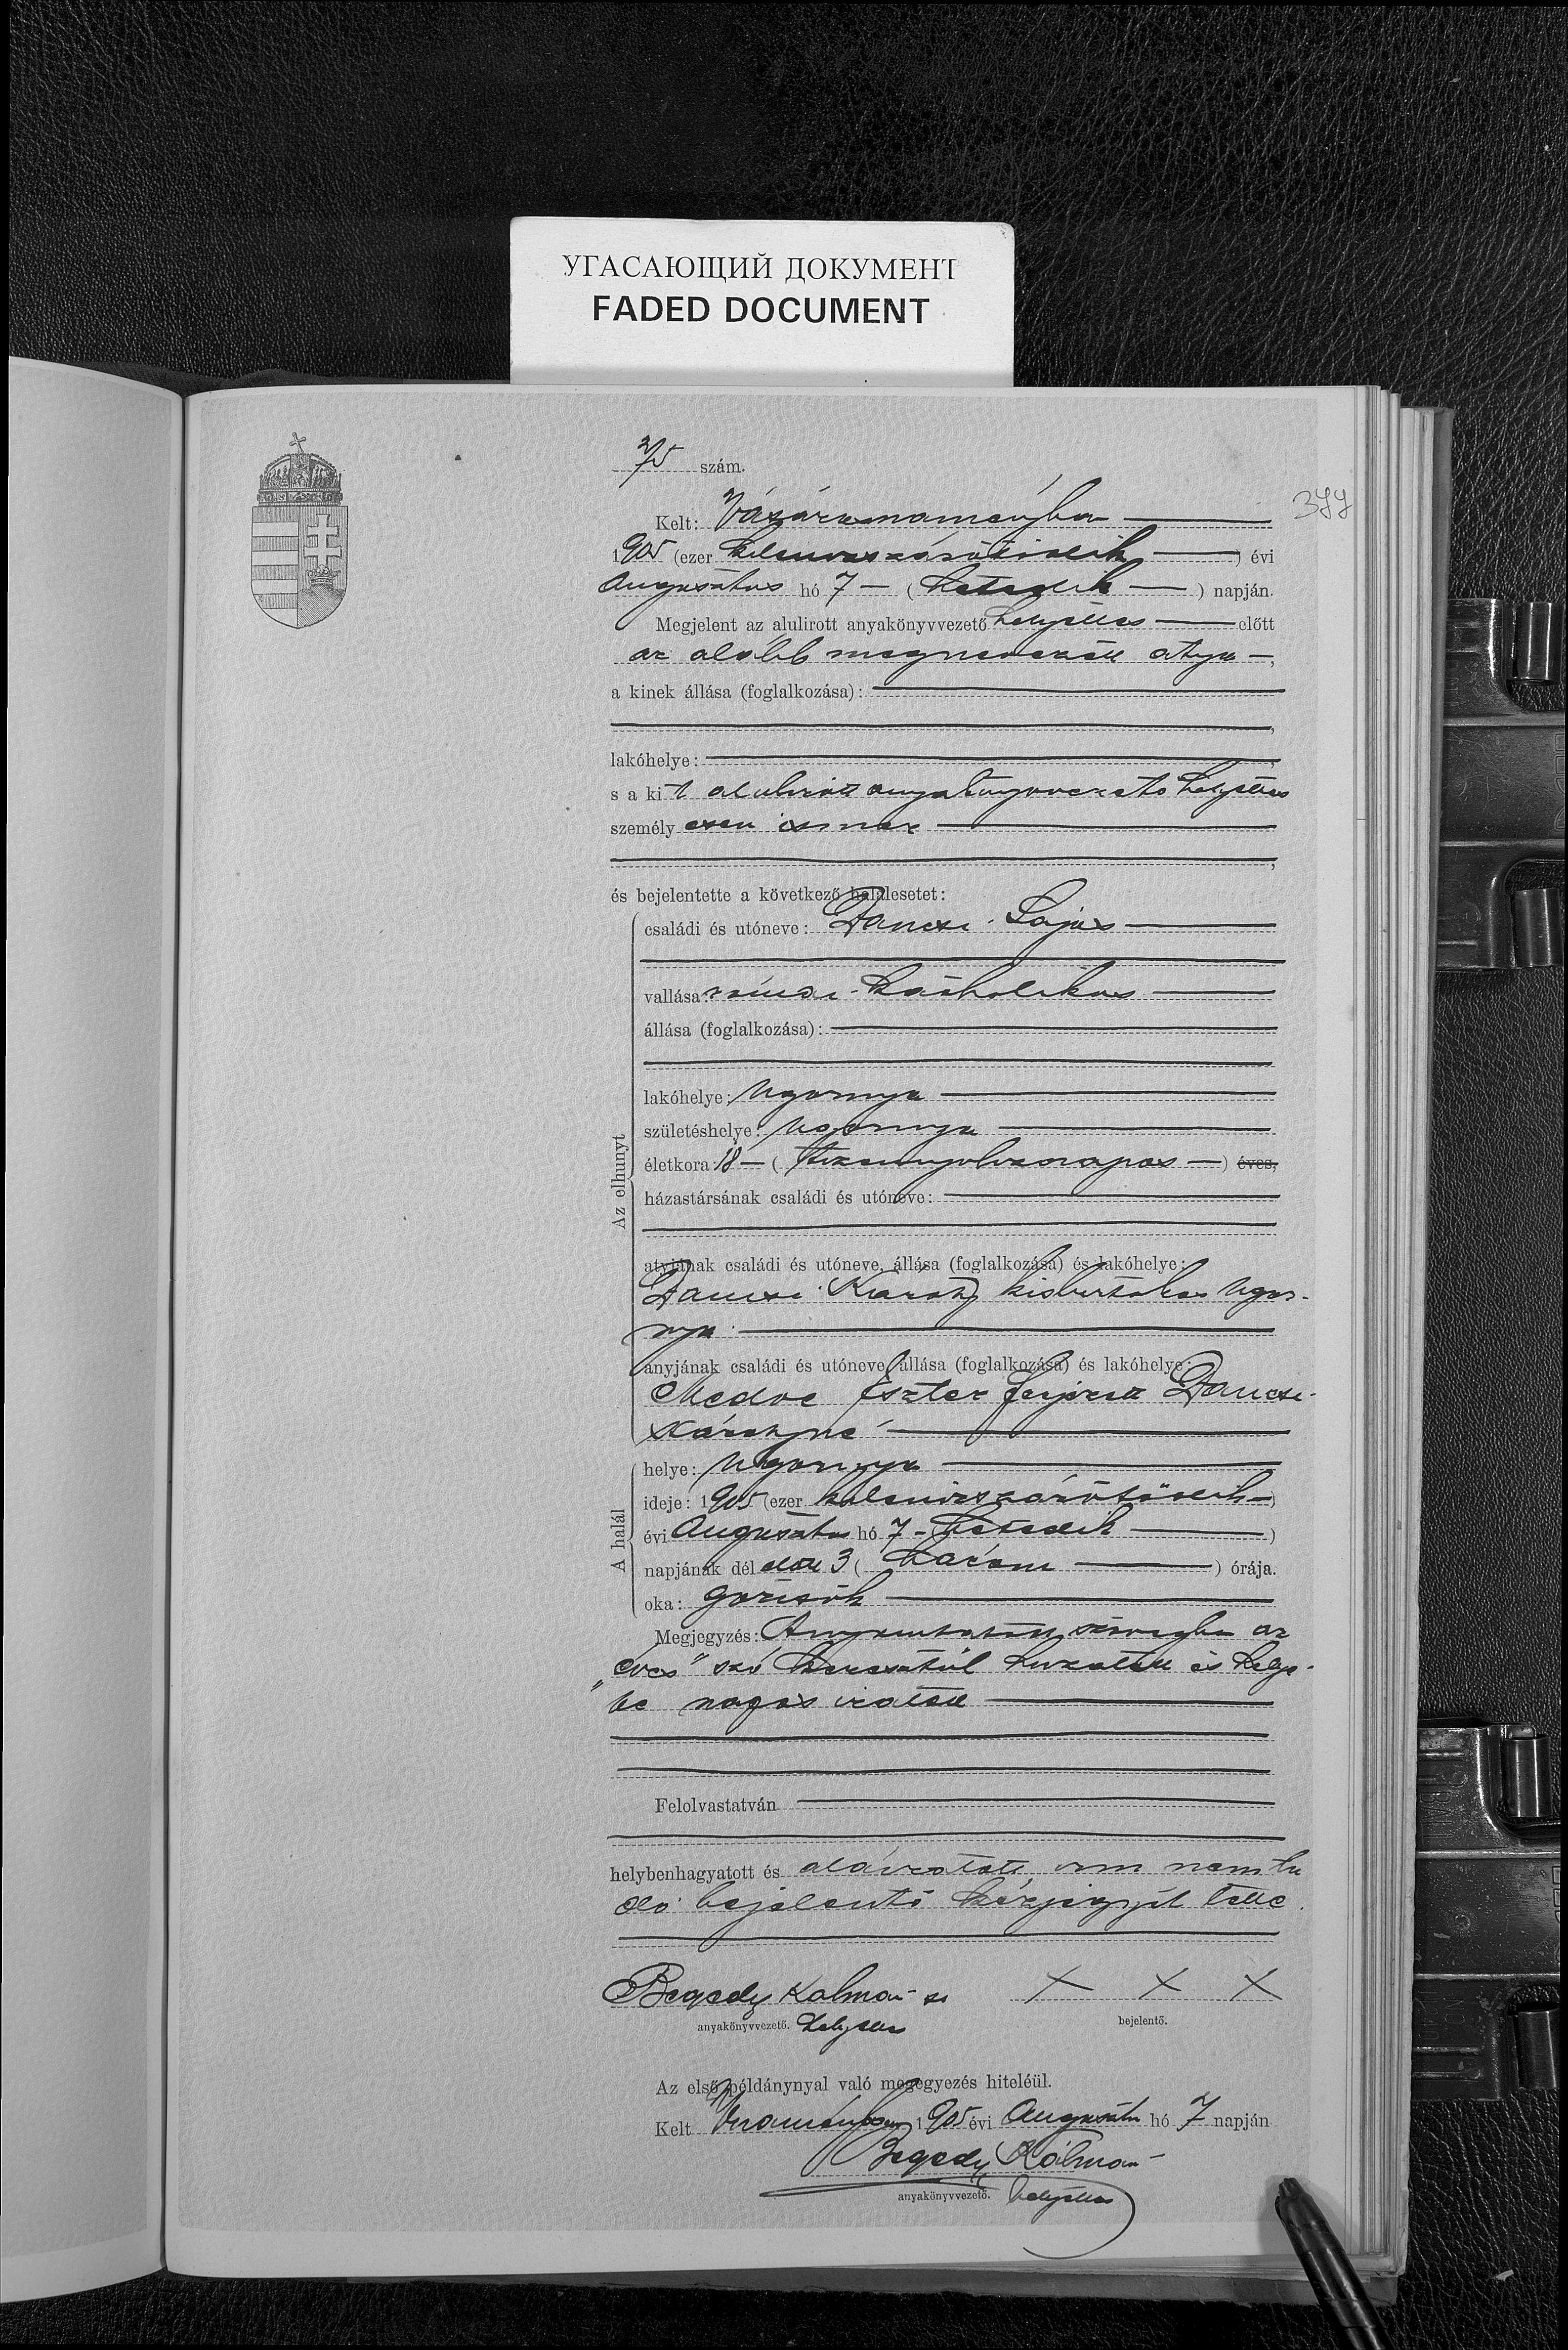 УГАСАЮЩИЙ ДОКУМЕНТ
FADED DOCUMENT
75 szám.
377
Kelt: Vásárosnaményban
1905 (ezer kilenczszázötödik) évi
Augusztus hó 7 (hetedik) napján.
Megjelent az alulirott anyakönyvvezető helyettes előtt
az alább megnevezett atya,
a kinek állása (foglalkozása):
lakóhelye:
s a kit alulirott anyakönyvvezető helyettes
személyesen ismer
és bejelentette a következő halálesetet:
Az elhunyt
családi és utóneve: Dancse Lajos
vallása: római katholikus
állása (foglalkozása):
lakóhelye: Ugornya
születéshelye: Ugornya
életkora: 18 (tizennyolcz napos) éves,
házastársának családi és utóneve:
atyjának családi és utóneve, állása (foglalkozása) és lakóhelye:
Dancse Károly kisbirtokos Ugor-
nya
anyjának családi és utóneve, állása (foglalkozása) és lakóhelye:
Medve Eszter férjezett Dancse
Károlyné
A halál
helye: Ugornya
ideje: 1905 (ezer kilenczszázötödik)
évi Augusztus hó 7 (hetedik)
napjának dél előtt 3 (három) órája.
oka: görcsök
Megjegyzés: A nyomtatott szövegben az
„éves" szó keresztül huzatott és helye-
be napos iratott
Felolvastatván
helybenhagyatott és aláiratott, irni nem tu
dó bejelentő kézjegyét tette.
Begedy Kálmán sk
x x x
anyakönyvvezető. helyettes
bejelentő.
Az első példánynyal való megegyezés hiteléül.
Kelt Vnaményban 1905 évi Augusztus hó 7 napján
Begedy Kálmán
anyakönyvvezető. helyettes